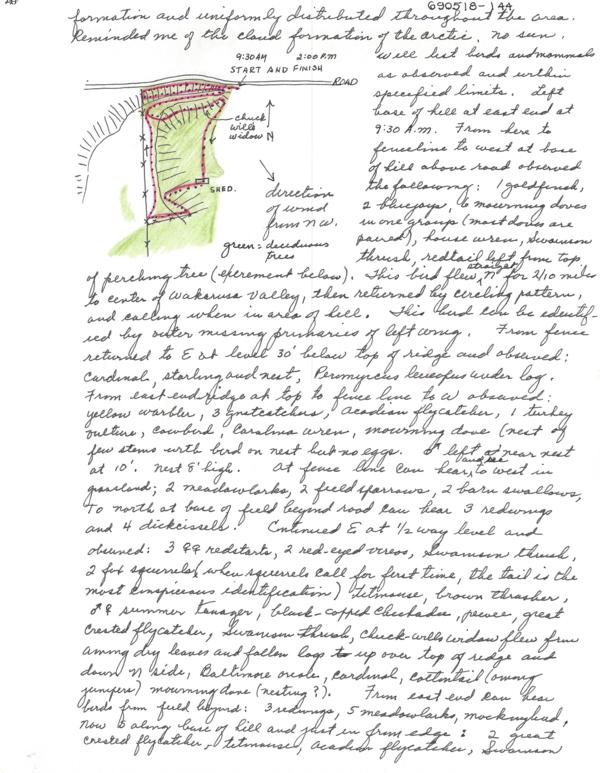 690518-144
formation and uniformly distributed throughout the area.
Reminded me of the cloud formation of the arctic, no sun.
9:30AM 2:00 P.M
START AND FINISH
ROAD
chuck
wills
widow
N
SHED.
direction
of wind
from NW.
green = deciduous
trees
Will list birds and mammals
as observed and within
specified limits. Left
base of hill at east end at
9:30 A.M. From here to
fenceline to west at base
of hill above road observed
the following: 1 goldfinch,
2 bluejays, 6 mourning doves
in one group (most doves are
paired), house wren, Swainson
thrush, redtail left from top
of perching tree (excrement below). This bird flew straight N for 2/10 miles
to center of Wakarusa Valley, then returned by circling pattern,
and calling when in area of hill. This bird can be identif-
ied by outer missing primaries of left wing. From fence
returned to E at level 30' below top of ridge and observed:
Cardinal, starling and nest, Peromyscus leucopus under log.
From east end ridge at top to fence line to W observed:
yellow warbler, 3 gnatcatchers, Acadian flycatcher, 1 turkey
vulture, cowbird, Carolina wren, mourning dove (nest of
few stems with bird on nest but no eggs. ♂ left at near nest
at 10'. nest 8' high. At fence line can hear and see to west in
grassland; 2 meadowlarks, 2 field sparrows, 2 barn swallows,
To north at base of field beyond road can hear 3 redwings
and 4 dickcissels. Continued E at 1/2 way level and
observed: 3 ♀♀ redstarts, 2 red-eyed vireos, Swainson thrush,
2 fox squirrels (when squirrels call for first time, the tail is the
most conspicuous identification) titmouse, brown thrasher,
♂♀ summer tanager, black-capped chickadee, pewee, great
crested flycatcher, Swainson thrush, Chuck-wills widow flew from
among dry leaves and fallen logs to up over top of ridge and
down N side, Baltimore oriole, cardinal, cottontail (among
junipers) mourning dove (nesting?). From east end can hear
birds from field beyond: 3 redwings, 5 meadowlarks, mockingbird,
Now along base of hill and just in from edge: 2 great
crested flycatcher, titmouse, Acadian flycatcher, Swainson